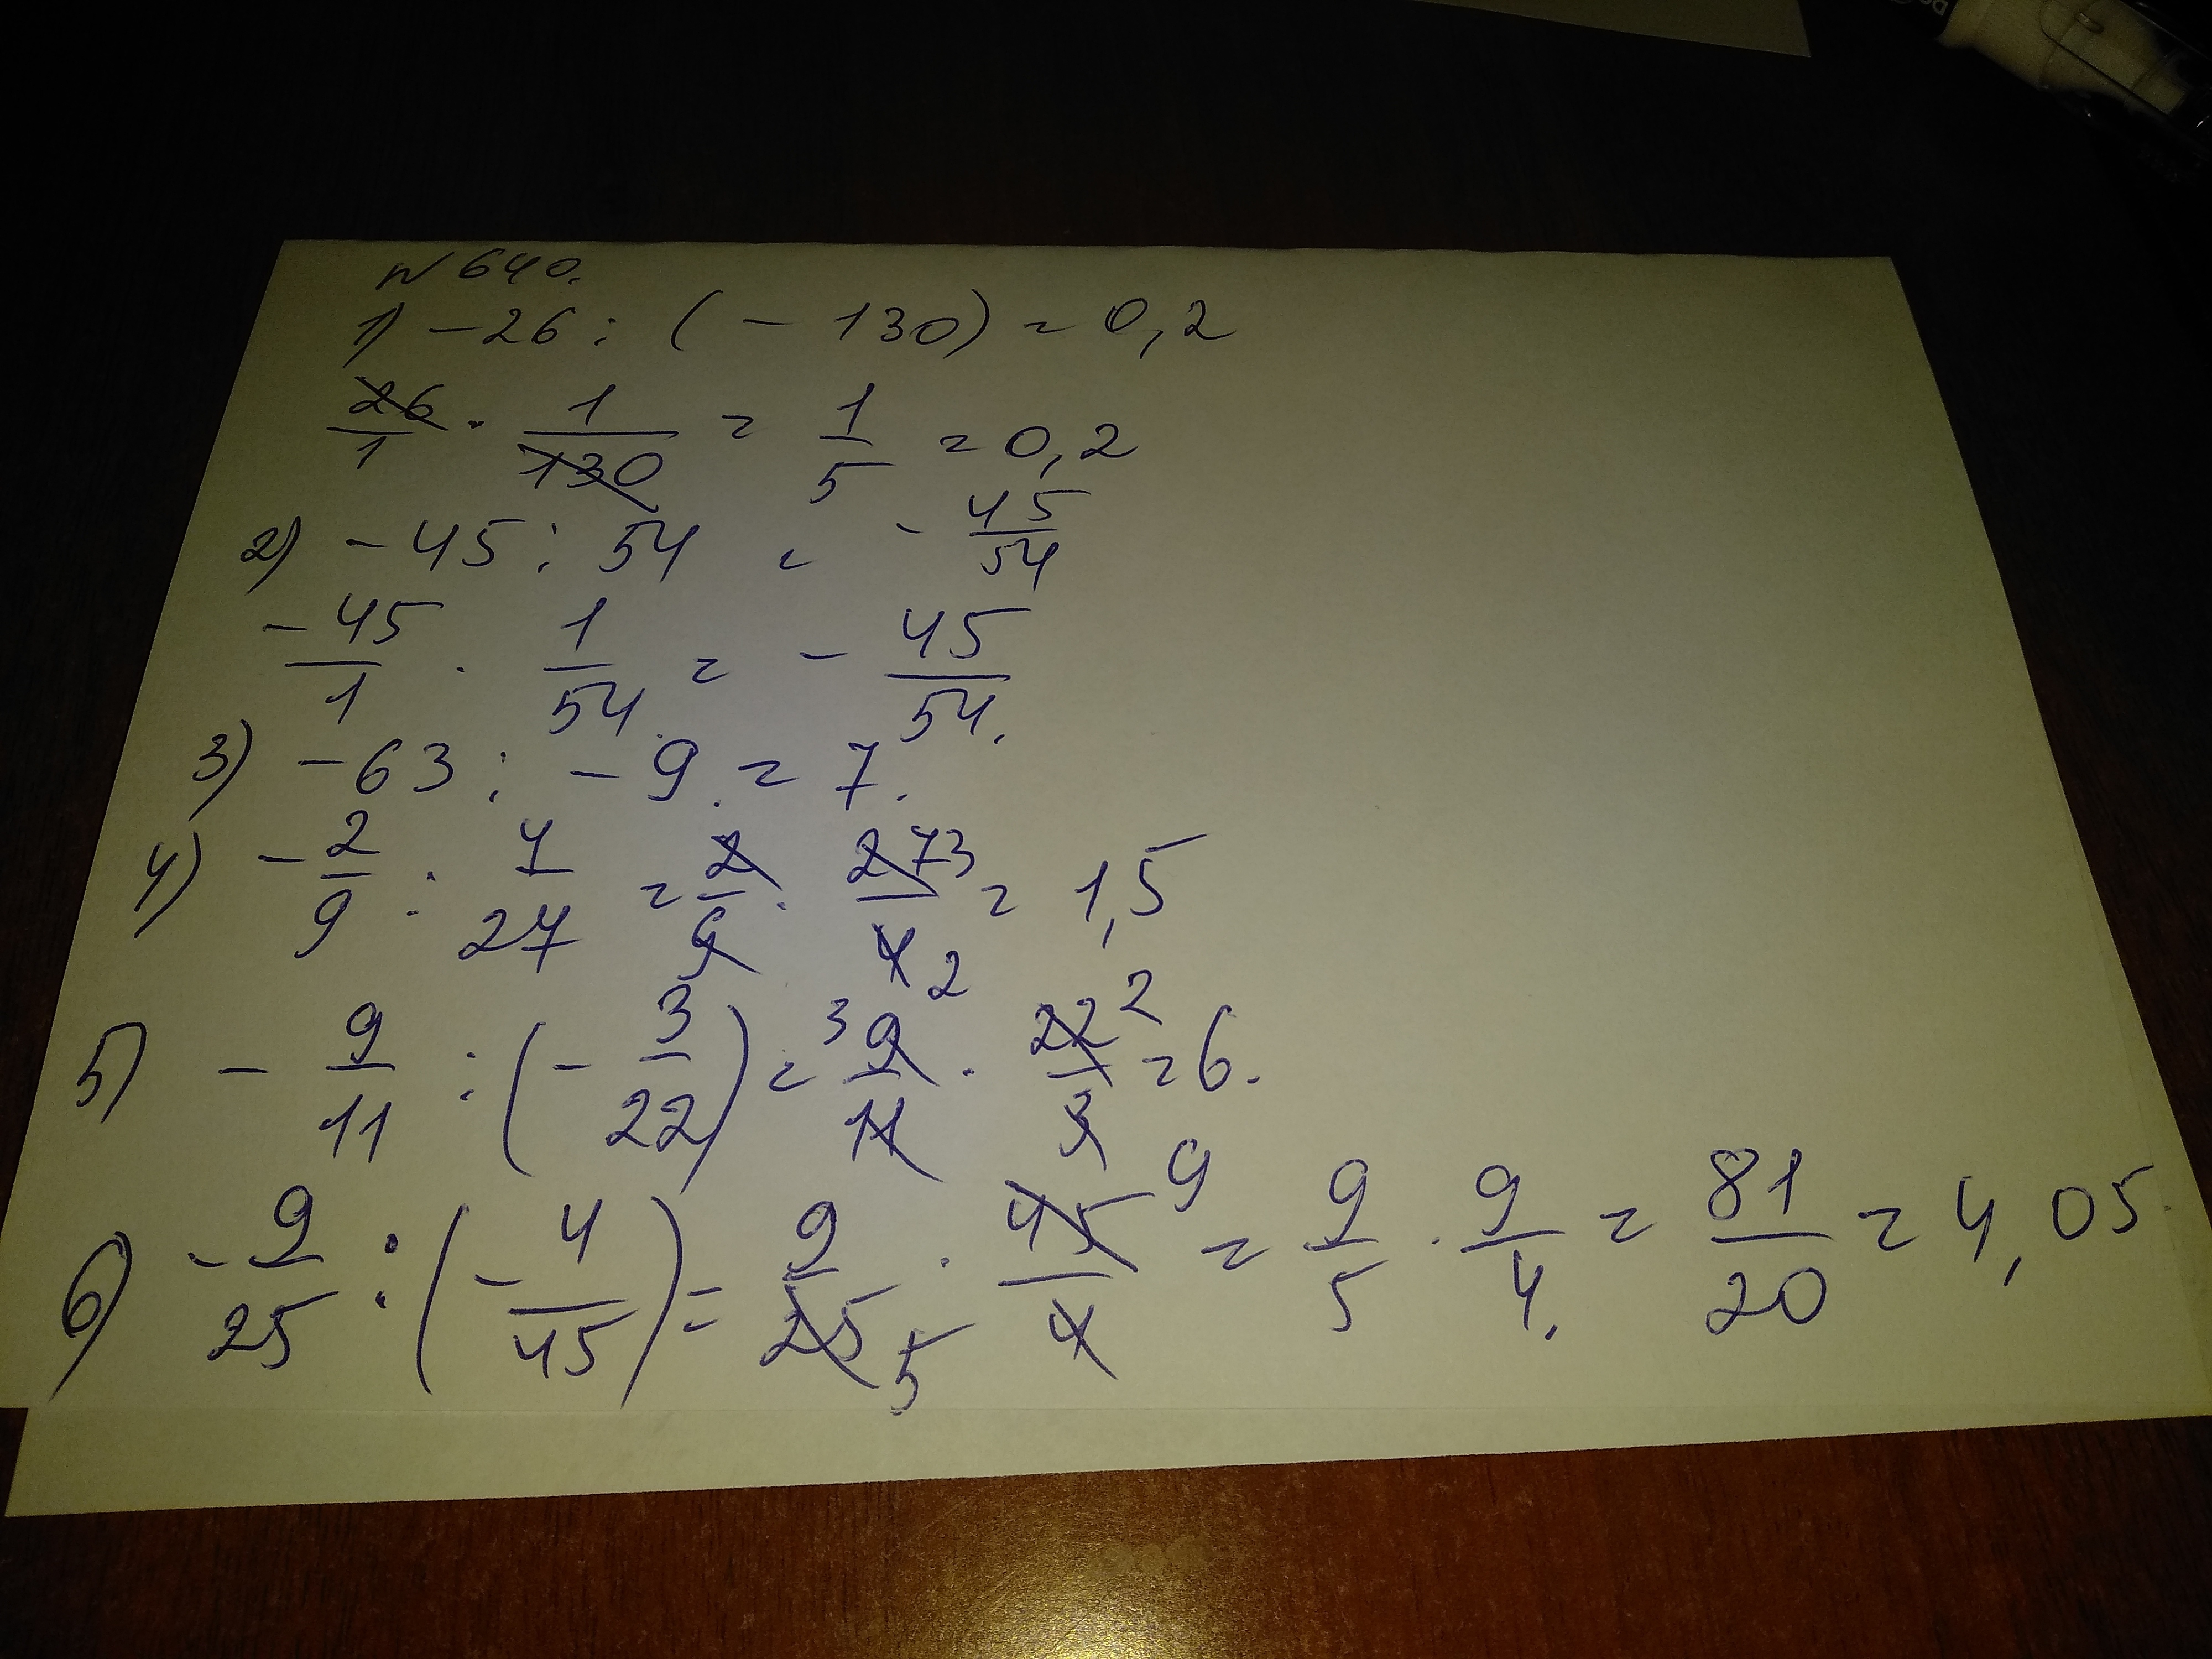 № 640.
1) - 26 : ( - 130) = 0,2
26/1 · 1/130 = 1/5 = 0,2
2) - 45 : 54 = - 45/54
- 45/1 · 1/54 = - 45/54.
3) - 63 : - 9 = 7.
4) - 2/9 : 4/27 = 2/9 · 27 3/4 2 = 1,5
5) - 9/11 : (- 3/22) = 3 9/11 · 22 2/3 = 6.
6) - 9/25 : (- 4/45) = 9/25 5 · 45 9/4 = 9/5 · 9/4. = 81/20 = 4,05